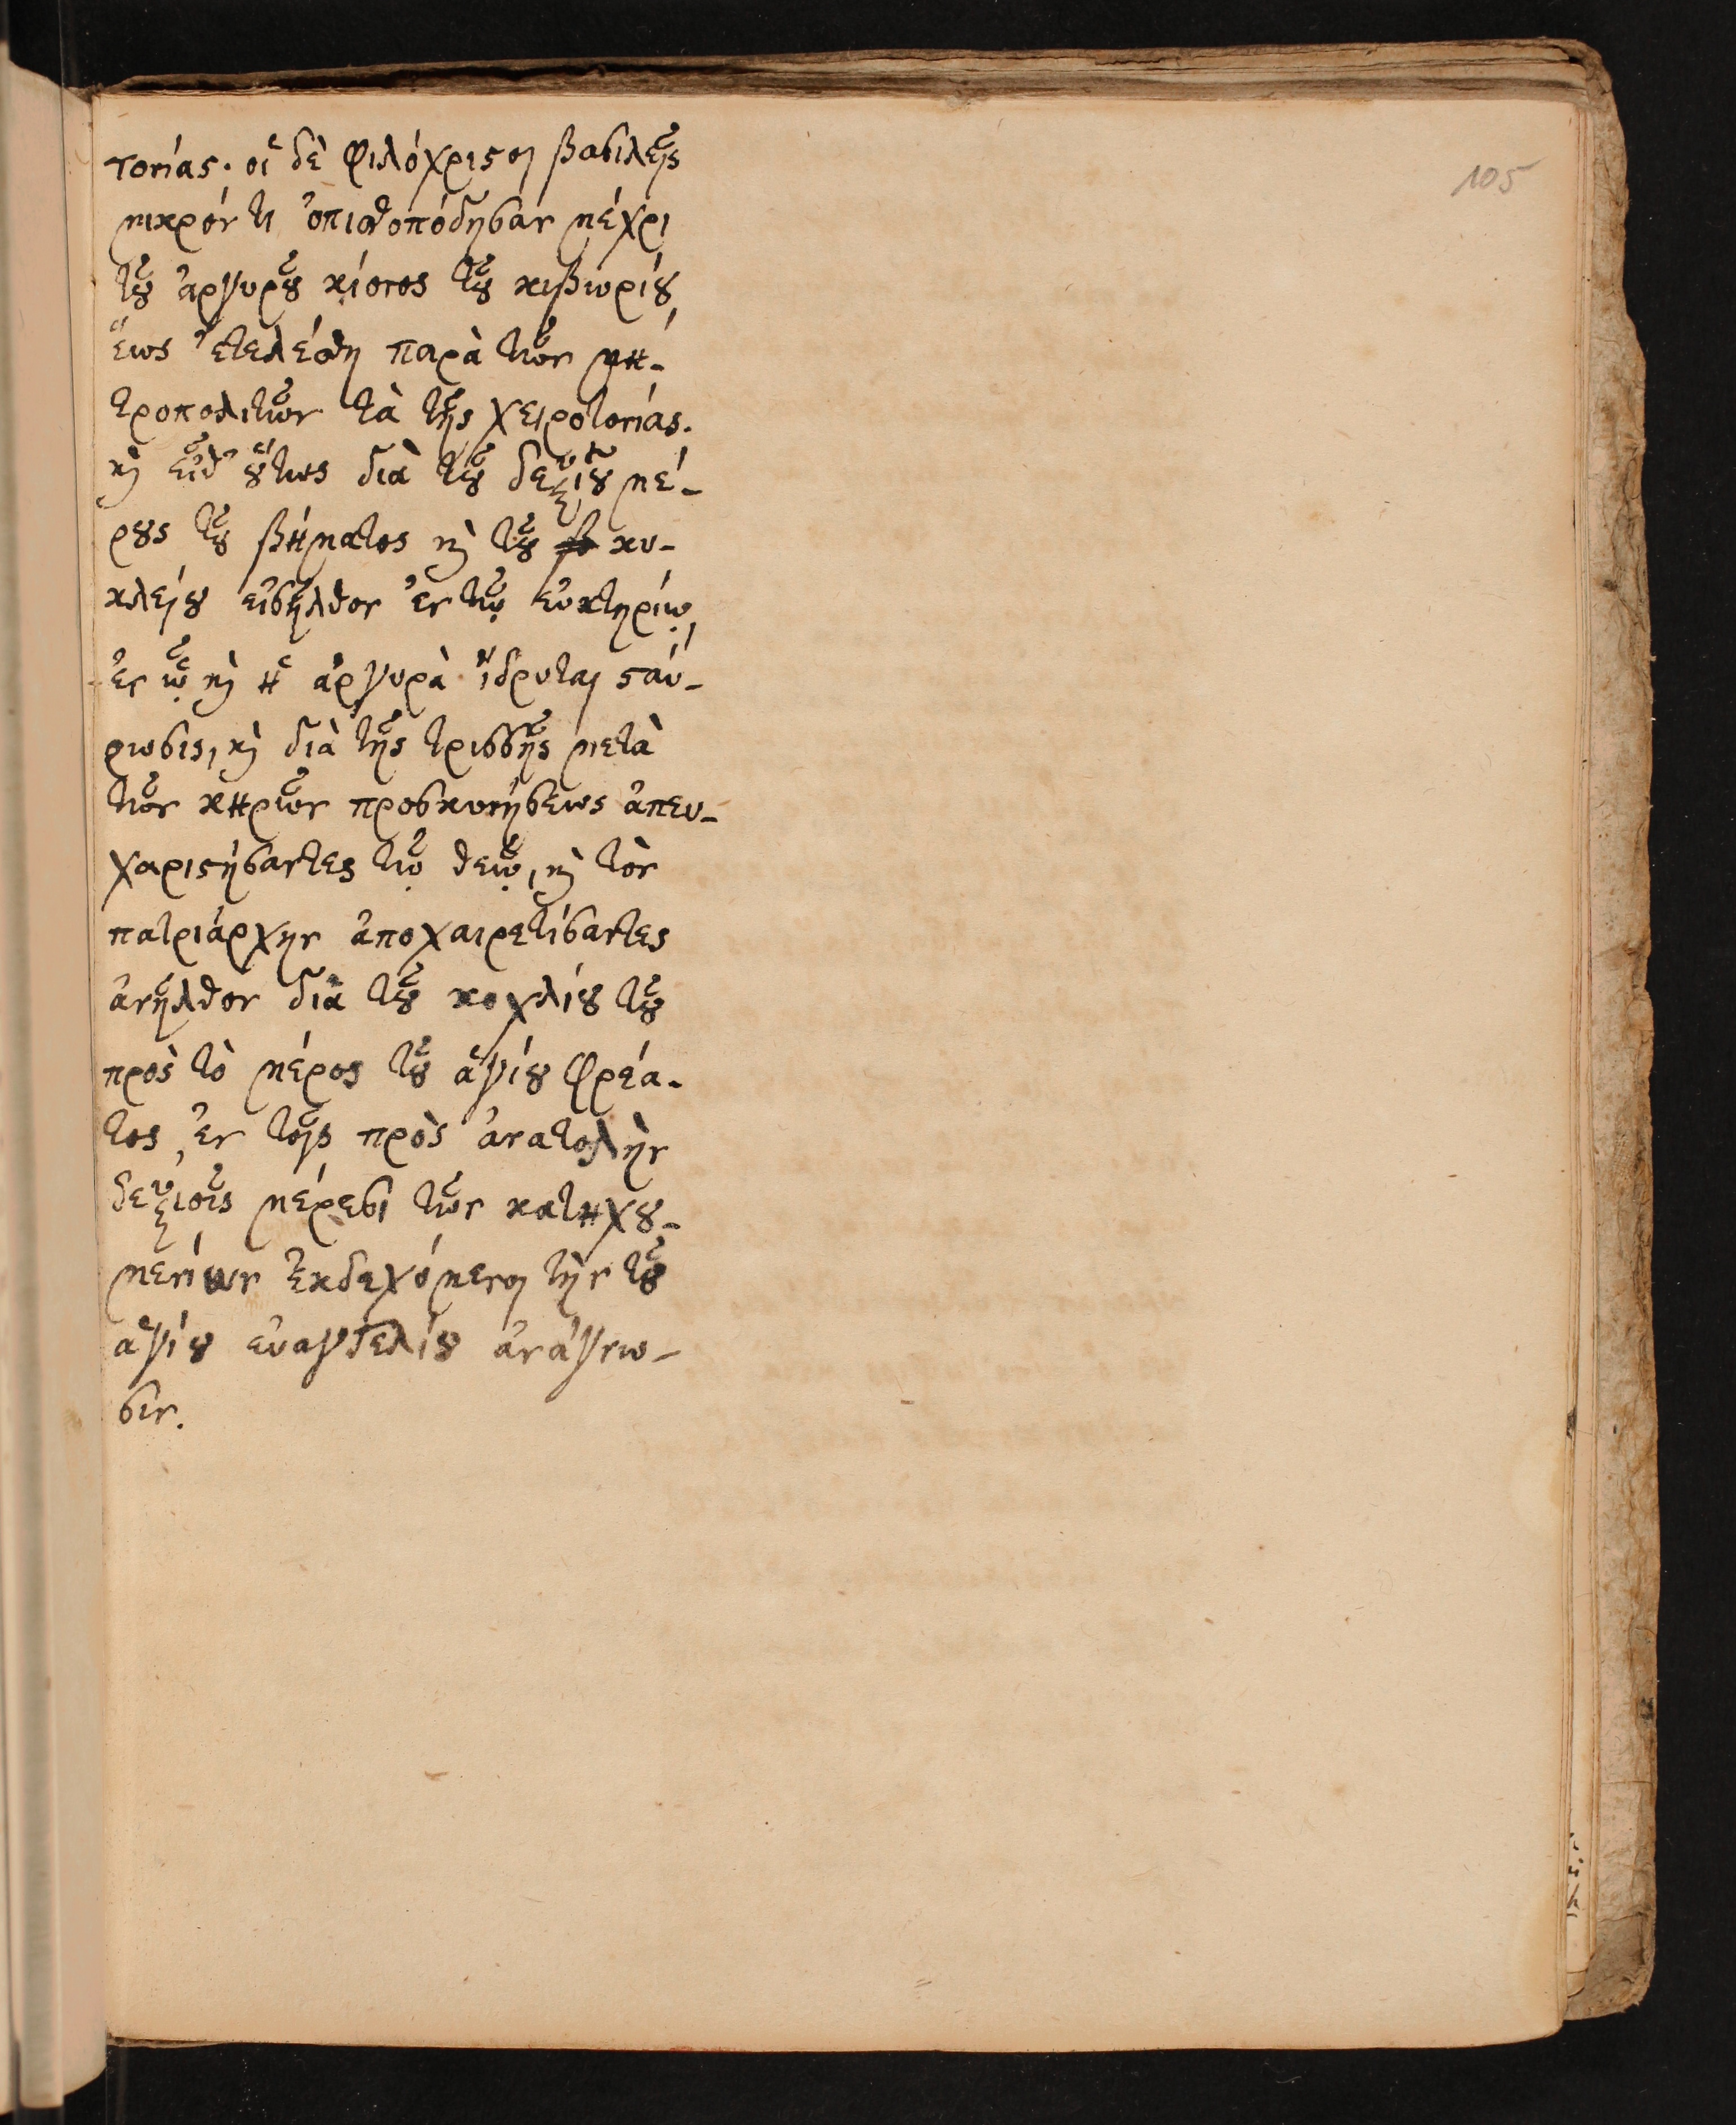 105
τονίας. οἱ δὲ φιλόχριςοι βασιλεῖς
μικρόν τι ὀπισθοπόδησαν μέχρι
τοῦ ἀργυροῦ κίονος τοῦ κιβωρίου,
ἕως ἐτελέσθη παρὰ τῶν μη-
τροπολιτῶν τὰ τῆς χειροτονίας.
καὶ εἶθ' οὕτως διὰ τοῦ δεξιοῦ μέ-
ρους τοῦ βήματος καὶ τοῦ κυ-
κλείου εἰσῆλθον ἐν τῷ εὐκτηρίῳ,
ἐν ᾧ καὶ ἡ ἀργυρὰ ἵδρυται ςαύ-
ρωσις, καὶ διὰ τῆς τρισσῆς μετὰ
τῶν κηρῶν προσκυνήσεως ἀπευ-
χαριςήσαντες τῷ θεῷ, καὶ τὸν
πατριάρχην ἀποχαιρετίσαντες
ἀνῆλθον διὰ τοῦ κοχλίου τοῦ
πρὸς τὸ μέρος τοῦ ἁγίου φρέα-
τος, ἐν τοῖς πρὸς ἀνατολὴν
δεξιοῖς μέρεσι τῶν κατηχου-
μενίων ἐκδεχόμενοι τὴν τοῦ
ἁγίου εὐαγγελίου ἀνάγνω-
σιν.